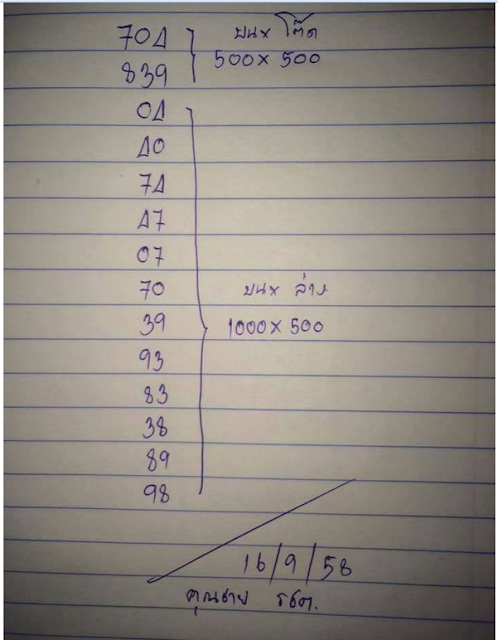 704 บนx โต๊ด
839 500x500
04
40
74
47
07
70 บนx ล่าง
39 1000x500
93
83
38
89
98
16/9/58
คุณชาย รชต.